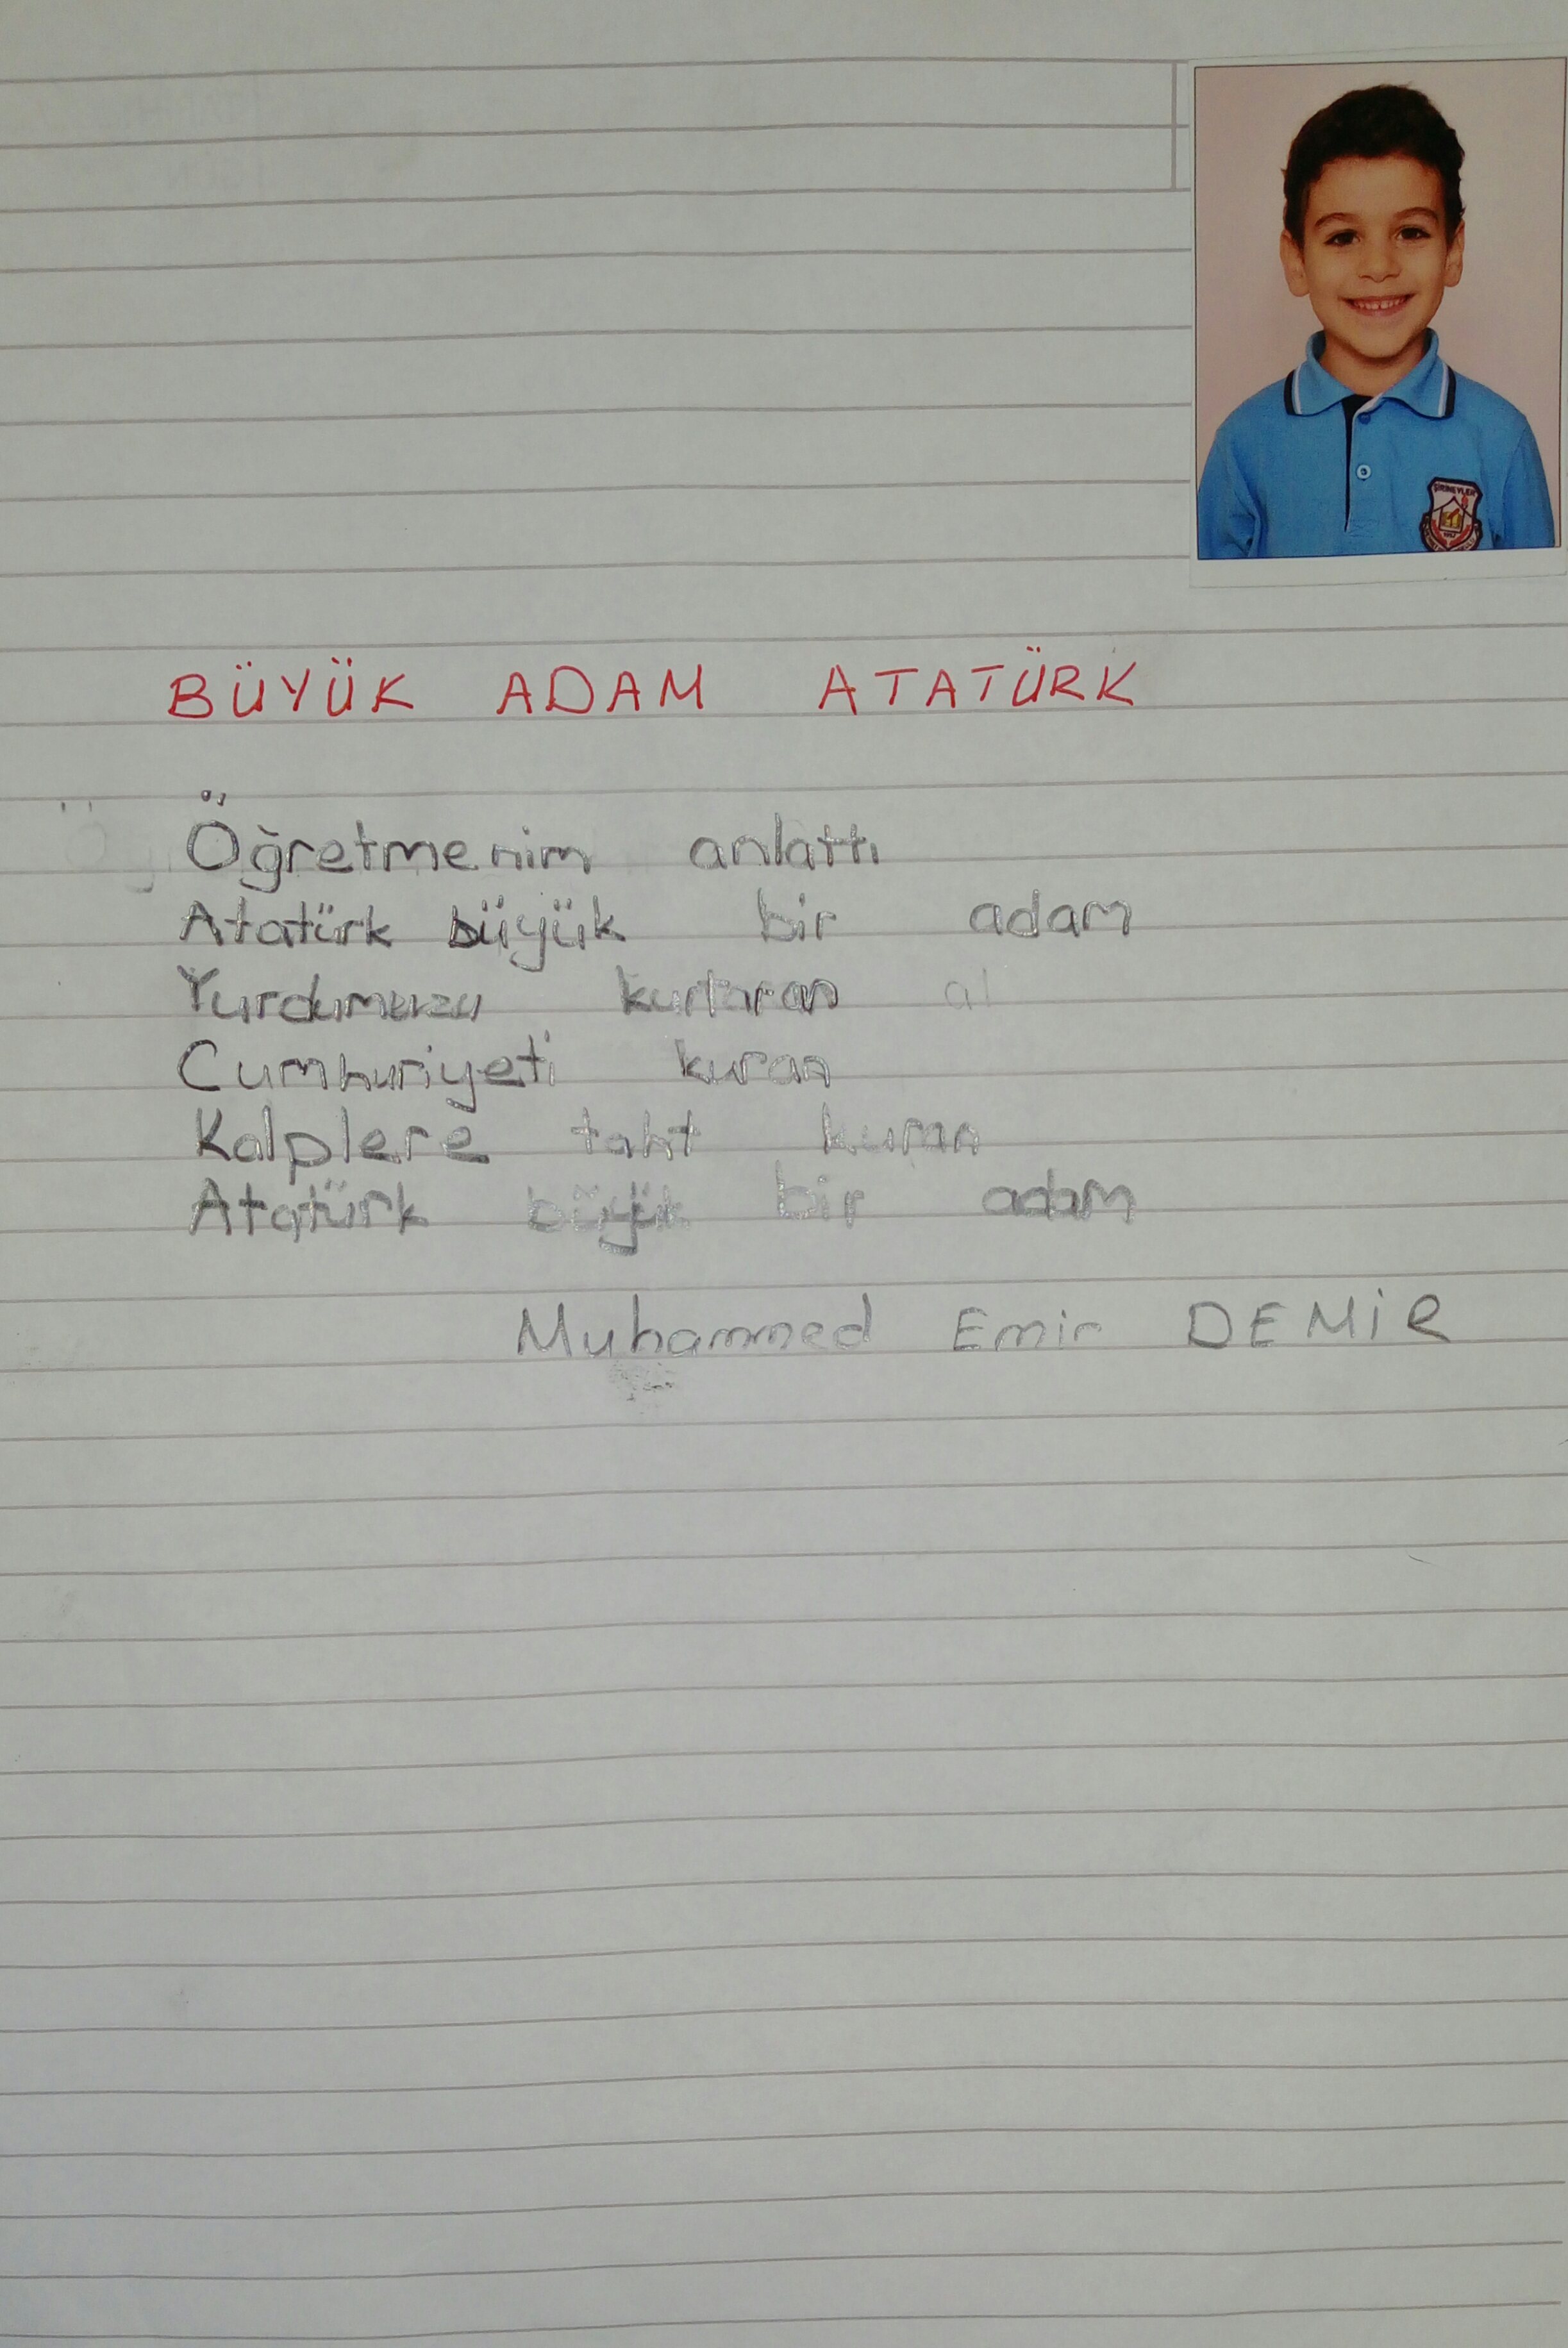 ŞİRİNEVLER
BÜYÜK ADAM ATATÜRK
Öğretmenim anlattı
Atatürk büyük bir adam
Yurdumuzu kurtaran al
Cumhuriyeti kuran
Kalplere taht kuran
Atatürk büyük bir adam
Muhammed Emir DEMİR